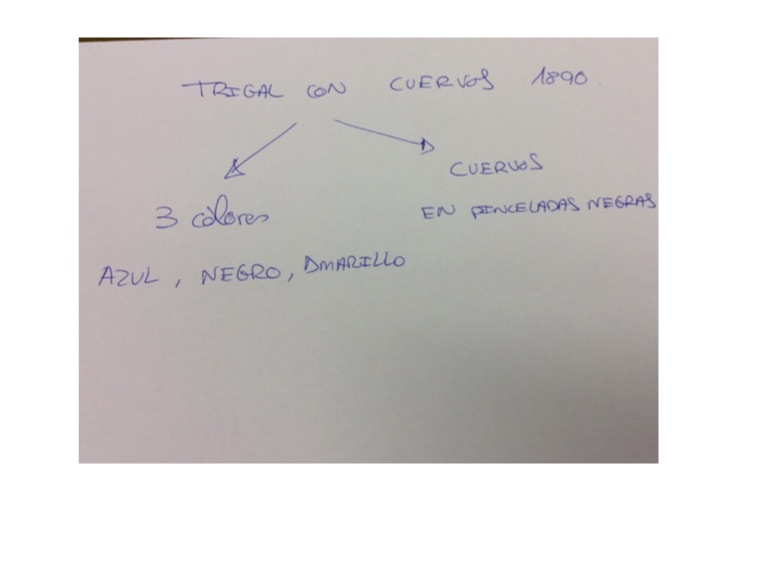 TRIGAL CON CUERVOS 1890
3 colores
AZUL, NEGRO, AMARILLO
CUERVOS
EN PINCELADAS NEGRAS